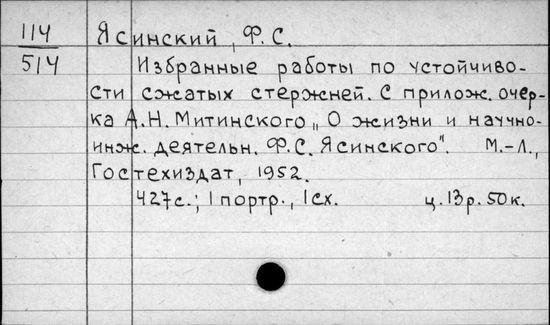 114
514
Ясинский, Ф.С.
Избранные работы по устойчиво-
сти сжатых стержней. С прилож. очер-
ка А.Н. Митинского „О жизни и научно-
инж. деятельн. Ф.С. Ясинского". М.-Л.,
Гостехиздат, 1952.
427с.; 1 портр., 1 сх. ц. 13р. 50к.